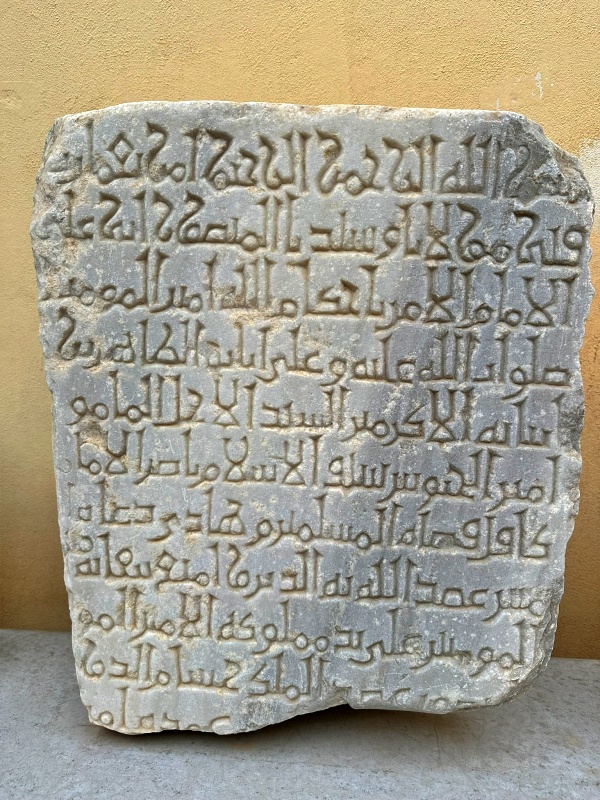 بسم الله الرحمن الرحيم امر بعمار
فتى مولانا وسيدنا المنصور ابي علي
الامام الامر باحكام الله امير المومنين
صلوات الله عليه وعلى ابائه الطاهرين و
ابنائه الاكرمين السيد الاجل المامو
امير الجيوش سيف الاسلام ناصر الامام
كافل قضاة المسلمين وهادي دعاة
منين عضد الله به الدين وامتع ببقائه
المومنين على يد مملوكه الامير المو
الملك حسام الدين
عمدة امير